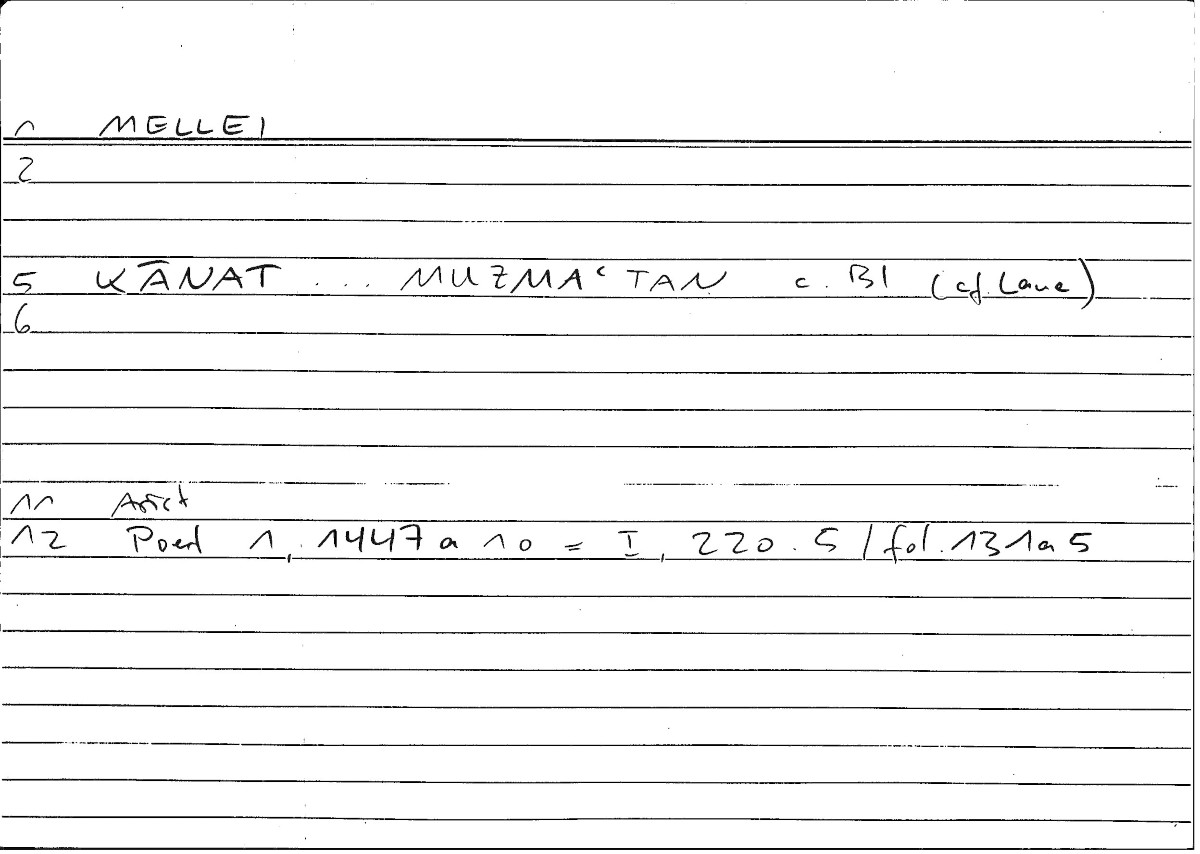 1 MELLEI
2
5 KĀNAT ... MUZMAᶜTAN c. BI (cf. Lane)
6
11 Arist
12 Poet 1, 1447a10 = I, 220.5 / fol. 131a5